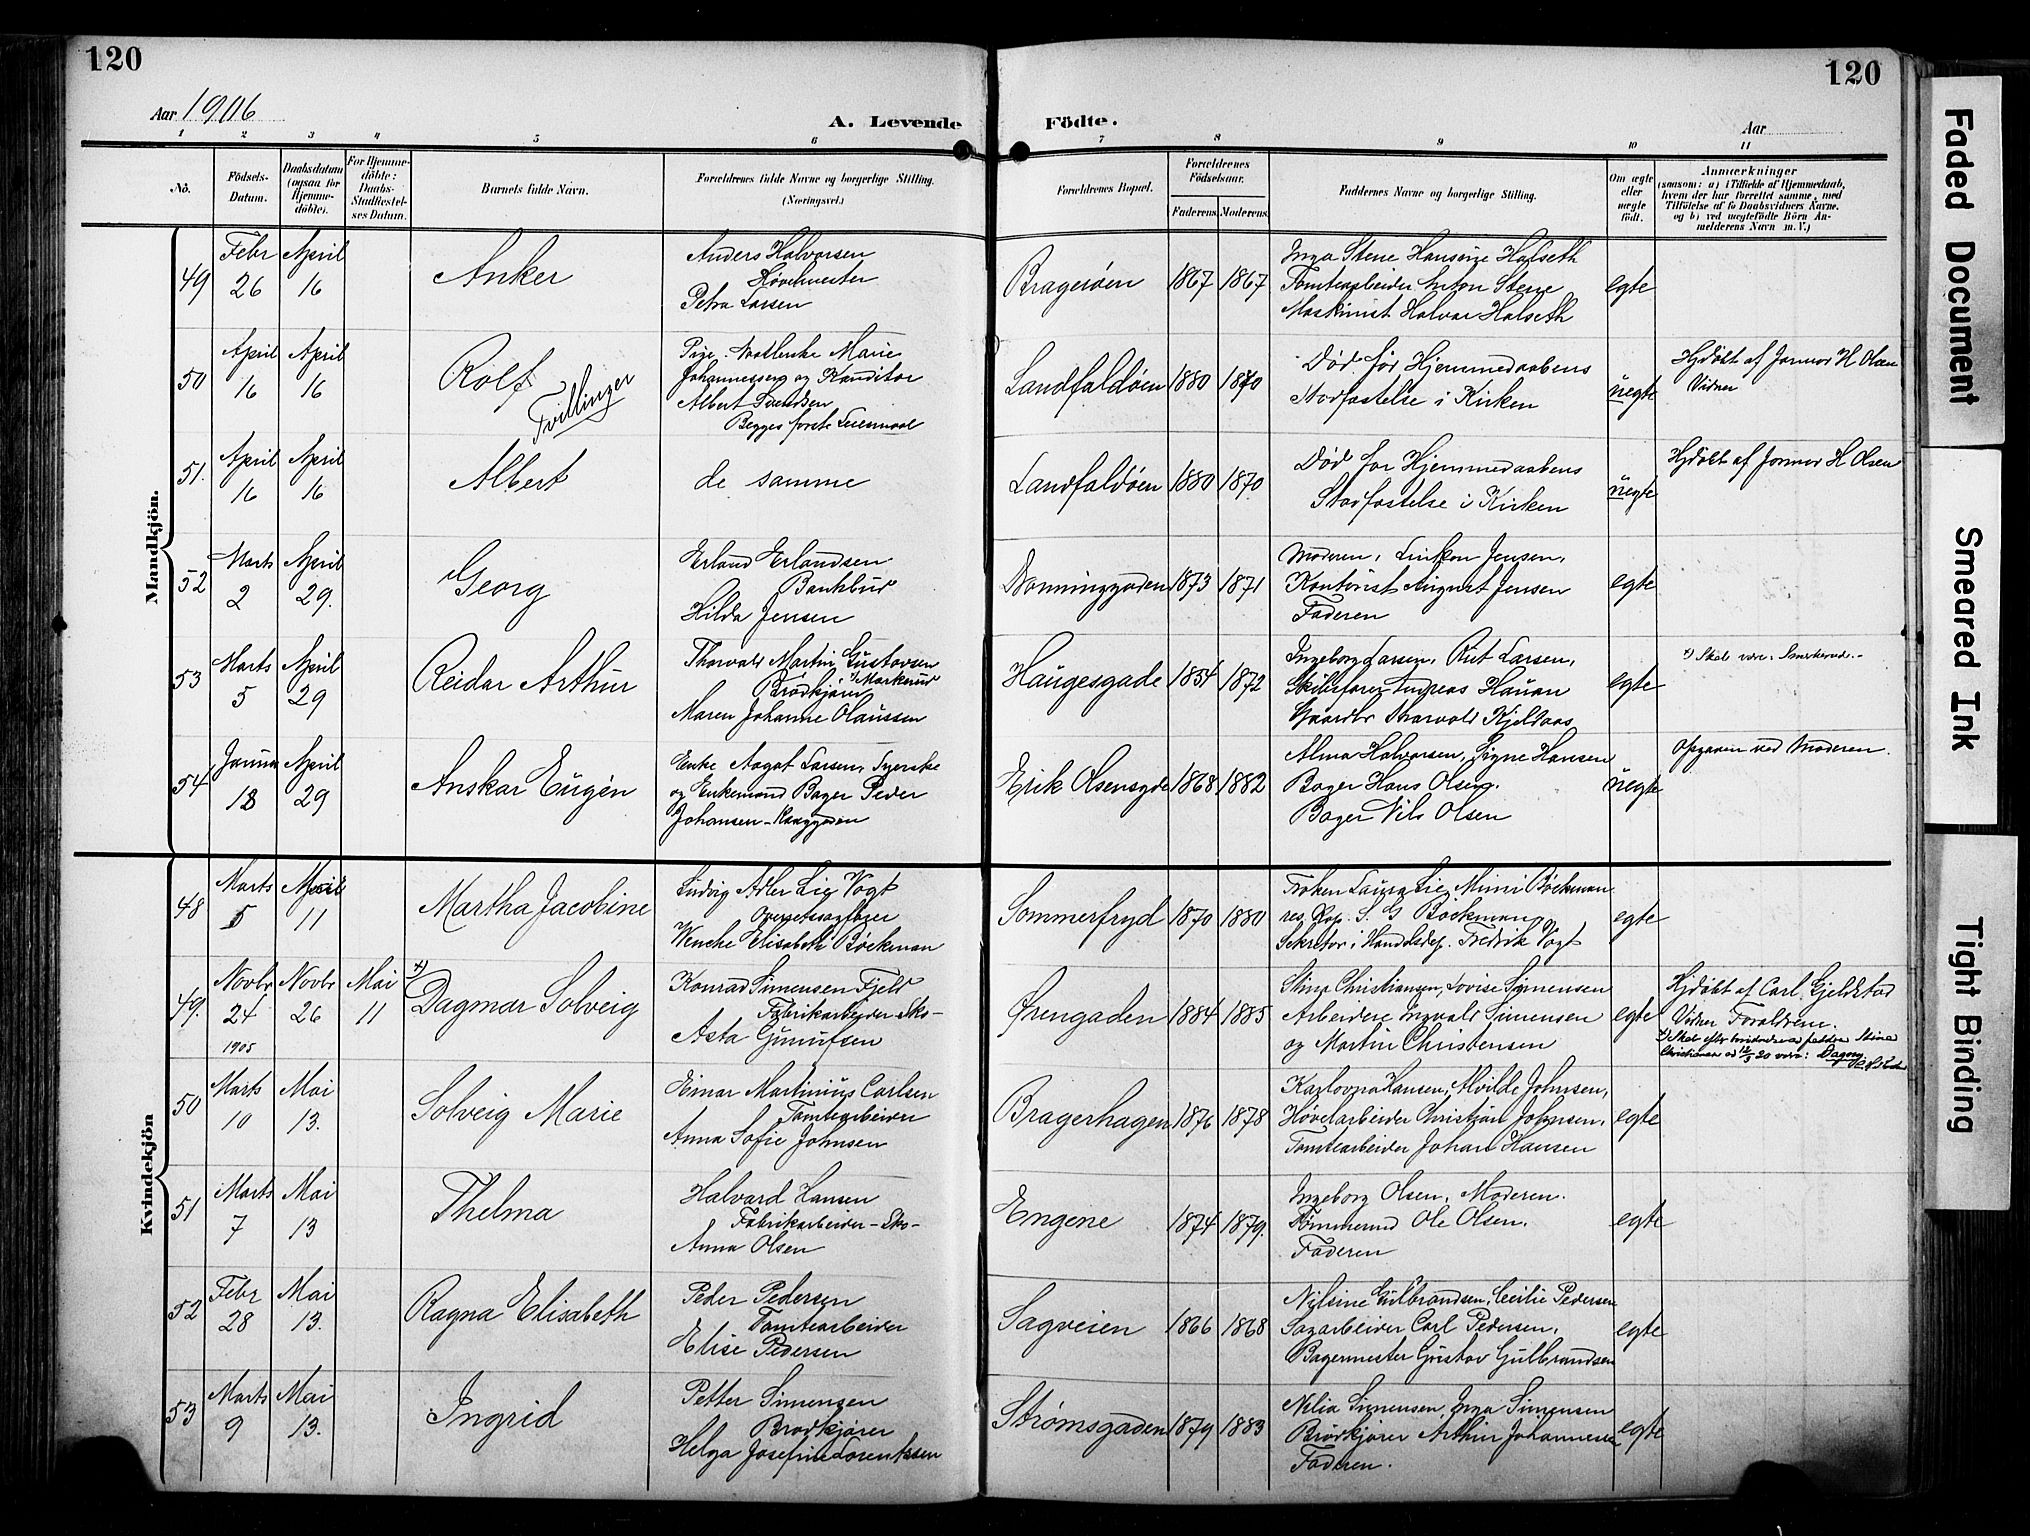 120
120
Aar 1906
A. Levende
Födte.
Aar
1 2 3 4 5 6 7 8 9 10 11
No.
Födsels-Datum.
Daabsdatum (ogsaa for Hjemme-döbte).
For Hjemme-döbte: Daabs-Stadfæstel-ses Datum.
Barnets fulde Navn.
Forældrenes fulde Navne og borgerlige Stilling.
(Næringsvei.)
Forældrenes Bopæl.
Forældrenes Födselsaar.
Faderens. Moderens.
Faddernes Navne og borgerlige Stilling.
Om ægte eller uægte födt.
Anmærkninger
(saasom: a) i Tilfælde af Hjemmedaab,
hvem der har forrettet samme, med
Tilföielse af to Daabsvidners Navne.
og b) ved uægtefödte Börn An-
melderens Navn m. V.)
Mandkjön.
49 Febr 26 April 16
Anker
Anders Halvorsen
Høvelmester
Petra Larsen
Bragerøen 1867 1867
Inga Stene Hansine Halseth
Tomtearbeider Anton Stene
Maskinist Halvor Halseth
egte
50 April 16 April 16
Rolf
Tvillinger
Pige Marie
Johannessen og Konditor
Albert Svendsen
Begges første Leiermaal
Landfaldøen 1880 1870
Død før Hjemmedaabens
Stadfæstelse i Kirken
uegte
Hjdøbt af Jormor H Olsen
Vidner
51. April 16 April 16
Albert
de samme
Landfaldøen 1880 1870
Død før Hjemmedaabens
Stadfæstelse i Kirken
uegte
Hjdøbt af Jormor H Olsen
52 Marts 2 April 29.
Georg
Erland Erlandsen
Bankbud
Hilda Jensen
1873 1871
Moderen, Jensen,
Kontorist August Jensen
Faderen
egte
53 Marts 5 April 29
Reidar Arthur
Thorvald Martin Gustavsen
Brødkjører Markerud
Maren Johanne Olaussen
Haugesgade 1854 1872
Ingeborg Larsen, Rut Larsen,
Skibsfører Andreas Hauan
Gaardbr Thorvald Kjeldaas
egte
*) Skal være: Smerkerud.-
54 Januar 18 April 29
Anskar Eugén
Enke Aagot Larsen, Syerske
og Enkemand Bager Peder
Johansen - Haugsgaden
Erik Olsensgde 1868 1882
Alma Halvorsen, Signe Hansen
Bager Hans Olsen.
Bager Nils Olsen
uegte
Opgaven ved Moderen.
Kvindekjön
48 Marts 5 April 11
Martha Jacobine
Ludvig Adler Lie Vogt
Overretssagfører
Wenche Elisabeth Bøckman
Sommerfryd 1870 1880
Frøken Laura Lie, Mimi Bøckman
res Kap. S. G Bøckman og
Sekretær i Handelsdep. Fredrik Vogt
egte
49. Novbr 24 1905 Novbr 26 Mai 11
*) Dagmar Solveig
Konrad Simensen Fjeld
Fabrikarbeider-Sko-
Asta Gunulfsen
Ørengaden 1884 1885
Stina Christiansen, Lovise Simensen
Arbeidere Ingvald Simensen
og Martin Christensen
egte
Hjdøbt af Carl Gjeldstad
Vidner Forældrene.
50 Marts 10 Mai 13.
Solveig Marie
Einar Martinius Carlsen
Tomtearbeider
Anna Sofie Johnsen
Bragerhagen 1876 1878
Karlovna Hansen, Alvilde Johnsen,
Høvelarbeider Christian Johnsen,
Tomtearbeider Johan Hansen
egte
51 Marts 7 Mai 13
Thelma
Halvard Hansen
Fabrikarbeider-Sko-
Anna Olsen
Engene 1874 1879.
Ingeborg Olsen, Moderen.
Tømmermd Ole Olsen,
Faderen
egte
52 Febr 28 Mai 13.
Ragna Elisabeth
Peder Pedersen
Tomtearbeider
Elise Pedersen
Sagveien 1866 1868
Nilsine Gulbrandsen, Cecilie Pedersen
Sagarbeider Carl Pedersen,
Bagermester Gustav Gulbrandsen
egte
53 Marts 9 Mai 13.
Ingrid
Petter Simensen
Brødkjører
Helga Josefine Lorentssen
Strømsgaden 1879 1883
Nilia Simensen, Inga Simensen
Brødkjører Arthur Johannesen
Faderen.
egte
Faded Document
Smeared Ink
Tight Binding